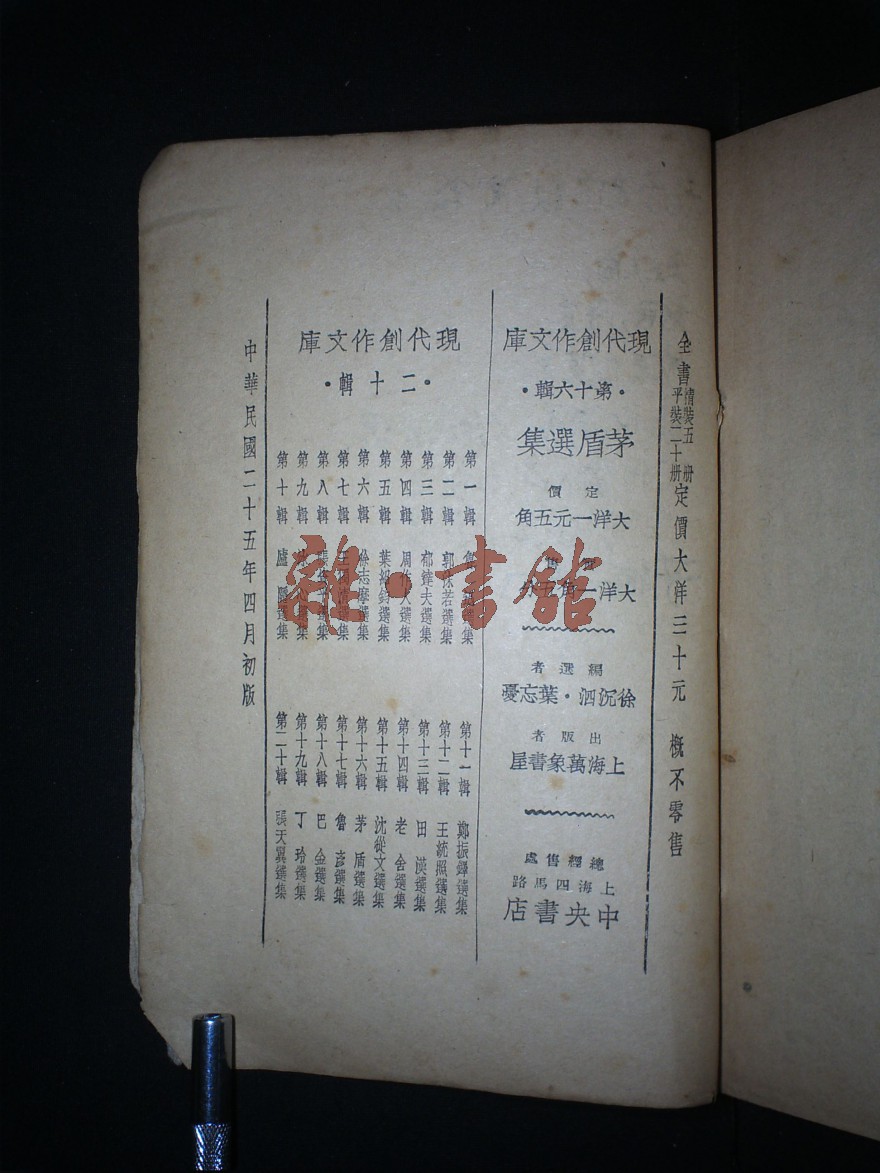 全書精裝五册平裝二十册定價大洋三十元 概不零售
現代創作文庫
·第十六輯·
茅盾選集
定價
大洋一元五角
售
大洋一角五分
編選者
徐沉泗·葉忘憂
出版者
上海萬象書屋
總經售處
上海四馬路
中央書店
現代創作文庫
·二十輯·
第一輯 選集
第二輯 郭沫若選集
第三輯 郁達夫選集
第四輯 周作人選集
第五輯 葉紹鈞選集
第六輯 徐志摩選集
第七輯 王選集
第八輯 張選集
第九輯 選集
第十輯 盧隱選集
第十一輯 鄭振鐸選集
第十二輯 王統照選集
第十三輯 田漢選集
第十四輯 老舍選集
第十五輯 沈從文選集
第十六輯 茅盾選集
第十七輯 魯彥選集
第十八輯 巴金選集
第十九輯 丁玲選集
第二十輯 張天翼選集
中華民國二十五年四月初版
雜·書館